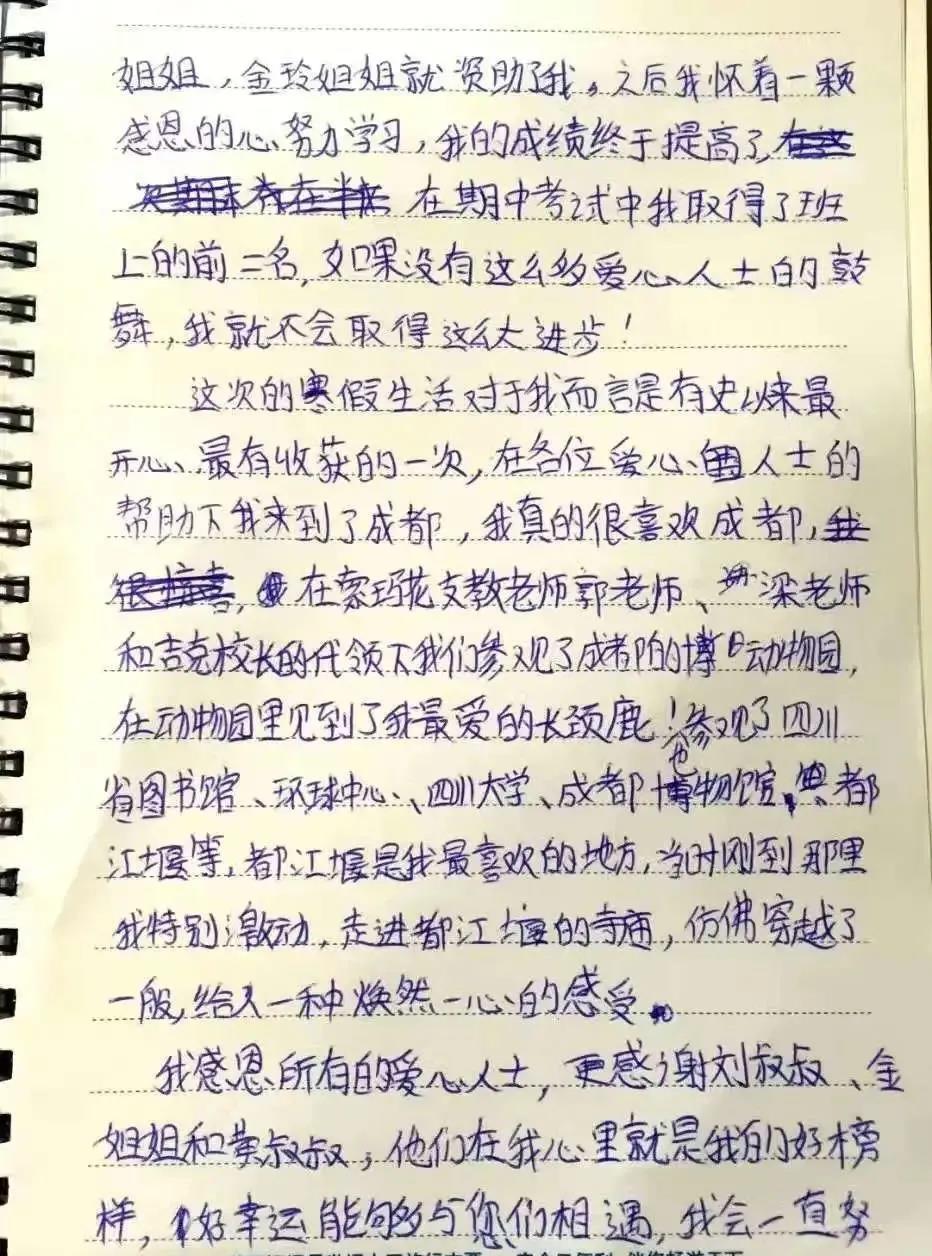 姐姐，金玲姐姐就资助了我，之后我怀着一颗
感恩的心努力学习，我的成绩终于提高了
在期中考试中我取得了班
上的前二名，如果没有这么多爱心人士的鼓
舞，我就不会取得这么大进步！
这次的寒假生活对于我而言是有史以来最
开心、最有收获的一次，在各位爱心人士的
帮助下我来到了成都，我真的很喜欢成都，
在索玛花支教老师郭老师、梁老师
和吉克校长的代领下我们参观了成都的博动物园，
在动物园里见到了我最爱的长颈鹿！也参观了四川
省图书馆、环球中心、四川大学、成都博物馆，都
江堰等，都江堰是我最喜欢的地方，当时刚到那里
我特别激动，走进都江堰的寺庙，仿佛穿越了
一般，给人一种焕然一心的感受。
我感恩所有的爱心人士，更感谢刘叔叔、金
姐姐和黄叔叔，他们在我心里就是我的好榜
样，好幸运能够与您们相遇，我会一直努